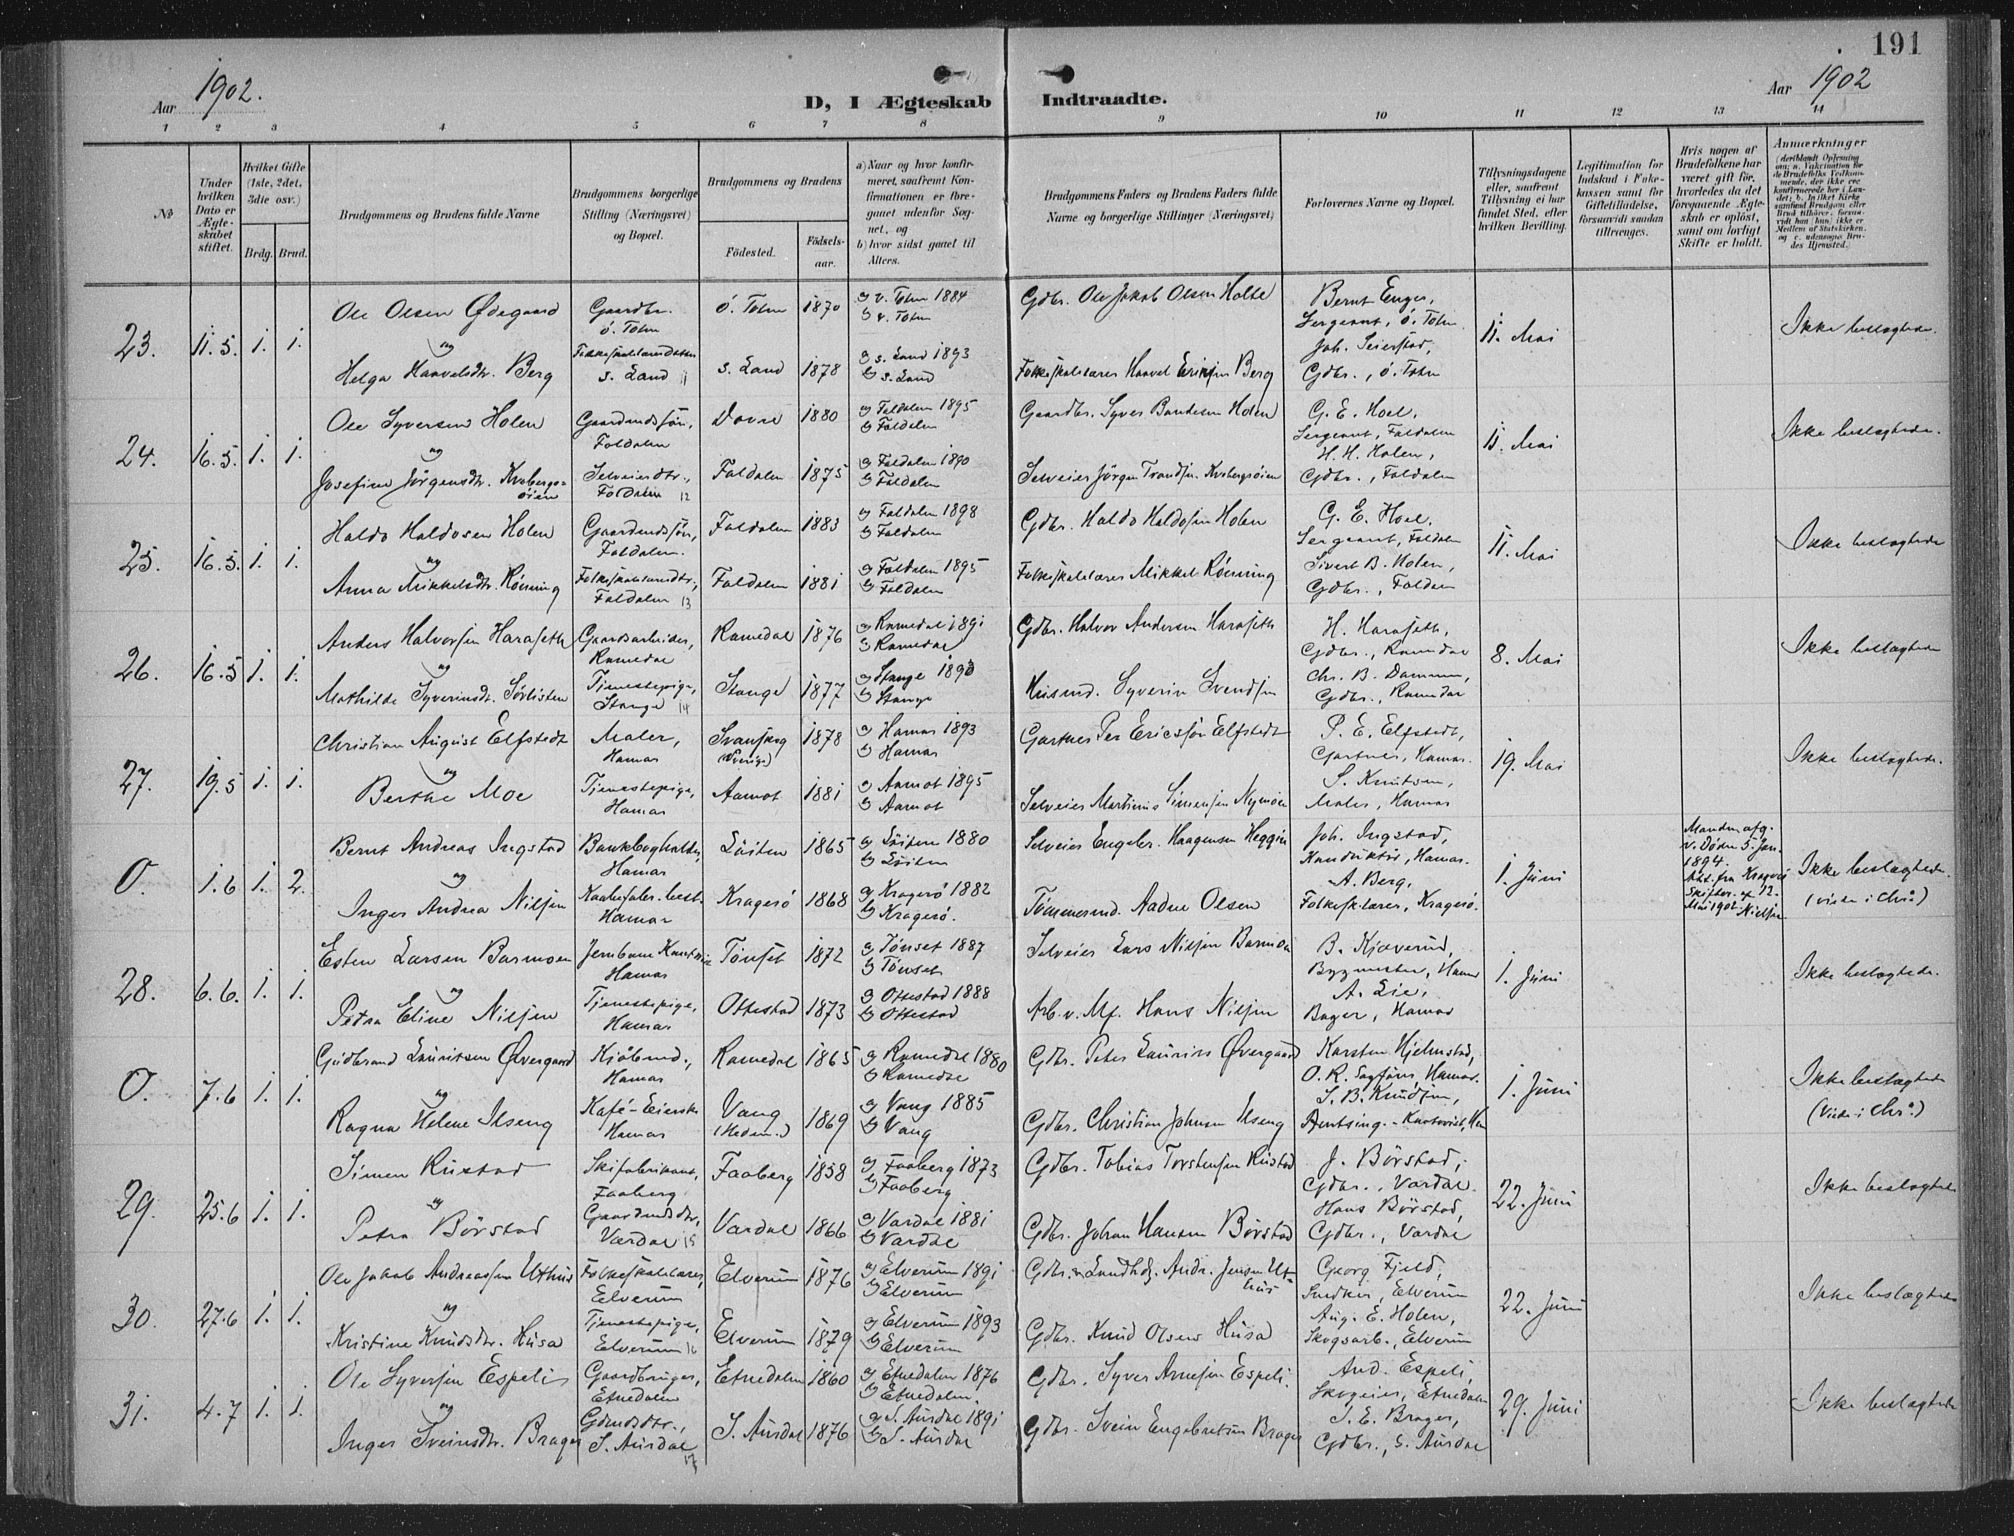 191
Aar 1902.
D, I Ægteskab Indtraadte.
Aar 1902
1 2 3 4 5 6 7 8 9 10 11 12 13 14
No
Under hvilken Dato er Ægteskabet stiftet.
Hvilket Gifte (1ste, 2det, 3die osv.)
Brdg. Brud.
Brudgommens og Brudens fulde Navne
Brudgommens borgerlige Stilling (Næringsvei) og Bopæl.
Brudgommens og Brudens
Fødested.
Fødselsaar.
a) Naar og hvor konfirmeret, saafremt Konfirmationen er foregaaet udenfor Sognet, og
b) hvor sidst gaaet til Alters.
Brudgommens Faders og Brudens Faders fulde Navne og borgerlige Stillinger (Næringsvei)
Forlovernes Navne og Bopæl.
Tillysningsdagene eller, saafremt Tillysning ei har fundet Sted, efter hvilken Bevilling.
Legitimation for Indskud i Enkekassen samt for Giftetilladelse, forsaavidt saadan tiltrænges.
Hvis nogen af Brudefolkene har været gift før, hvorledes da det foregaaende Ægteskab er opløst, samt om lovligt Skifte er holdt.
Anmærkninger
23. 11.5. 1. 1.
Ole Olsen Ødegaard Gaardbr. ö. Toten ö. Toten 1870 a) v. Toten 1884 b) v. Toten Gdbr. Ole Jakob Olsen Holte
og
Helga Haavelsdtr. Berg s. Land 11 s. Land 1878 a) s. Land 1893 b) s. Land Folkeskolelærer Haavel Eriksen Berg
Bernt Enger, Sergeant, ö. Toten. Joh. Seierstad, Gdbr., ö. Toten
11. Mai
Ikke beslægtede.
24. 16.5. 1. 1.
Ole Syversen Holen Gaardmandssøn, Foldalen Dovre 1880 a) Foldalen 1895 b) Foldalen Gaardbr. Syver Holen
og
Josefine Jørgensdtr. Kvebergsöien Selveierdtr., Foldalen 12 Foldalen 1875 a) Foldalen 1890 b) Foldalen Selveier Jörgen Trondsen Kvebergsöien
G. E. Hoel, Sergeant, Foldalen H. H. Holen, Gdbr., Foldalen
11. Mai
Ikke beslægtede.
25. 16.5. 1. 1.
Haldo Haldosen Holen Gaardmandssøn, Foldalen. Foldalen 1883 a) Foldalen 1898 b) Foldalen Gdbr. Haldo Haldosen Holen
og
Anna Mikkelsdtr. Rönning Foldalen 13 Foldalen 1881 a) Foldalen 1895 b) Foldalen Folkeskolelærer Mikkel Rönning
G. E. Hoel, Sergeant, Foldalen Sivert B. Holen, Gdbr., Foldalen
11. Mai
Ikke beslægtede
26. 16.5 1. 1.
Anders Halvorsen Haraseth Gaardarbeider, Romedal Romedal 1876 a) Romedal 1891 b) Romedal Gdbr. Halvor Andersen Haraseth
og
Mathilde Syverinsdtr. Sörlisten Tjenestepige, Stange 14 Stange 1877 a) Stange 1893 b) Stange Husmd. Syverin Svendsen
H. Haraseth, Gdbr., Romedal Chr. B. Dammen, Gdbr., Romedal
8. Mai
Ikke beslægtede
27. 19.5 1. 1.
Christian August Elfstedt Maler, Hamar Svanskog (Sverige) 1878 a) Hamar 1893 b) Hamar Gartner Per Ericssön Elfstedt
og
Berthe Moe Tjenestepige, Hamar Aamot 1881 a) Aamot 1895 b) Aamot Selveier Martinus Simensen Nymoen
P. E. Elfstedt, Gartner, Hamar. S. Knutsen, Maler, Hamar
19. Mai
Ikke beslægtede.
0. 1.6 1. 2.
Bernt Andreas Ingstad Bankbogholder, Hamar Löiten 1865 a) Löiten 1880 b) Löiten Selveier Engebr. Haagensen Heggen
og
Inger Andrea Nilsen Hamar Kragerö 1868 a) Kragerö 1882 b) Kragerö. Tömmermd. Aadne Olsen
Joh. Ingstad, Konduktör, Hamar. A. Berg, Folkesk.lærer, Kragerö.
1. Juni
Manden afg. v. Döden 5 Jan. 1894. Att. fra Kragerö Skifter. af 12. Mai 1902
Ikke beslægtede. (viede i Chr.a)
28. 6.6. 1. 1.
Esten Larsen Barmoen Hamar Tönset 1872 a) Tönset 1887 b) Tönset Selveier Lars Nilsen Barmoen
og
Petra Eline Nilsen Tjenestepige, Hamar Ottestad 1873 a) Ottestad 1888 b) Ottestad Arb.v. Mf. Hans Nilsen
B. Kjæverud, Bygmester, Hamar A. Lie, Bager, Hamar
1. Juni
Ikke beslægtede.
0. 7.6 1. 1.
Gudbrand Lauritsen Övergaard Kjöbmd., Hamar Romedal 1865 a) Romedal 1880 b) Romedal Gdbr. Peter Laurits Övergaard
og
Ragna Helene Ilseng Kafé-Eierske Hamar Vang (Hedem.) 1869 a) Vang 1885 b) Vang Gdbr. Christian Johnsen Ilseng
Karsten Hjelmstad, O. R. Hamar. S. B. Knudsen,
1. Juni
Ikke beslægtede (Viede i Chr.a)
29. 25.6 1. 1.
Simen Rustad Skifabrikant, Faaberg Faaberg 1858 a) Faaberg 1873 b) Faaberg Gdbr. Tobias Torstensen Rustad
og
Petra Börstad Gaardmdsdtr., Vardal 15 Vardal 1866 a) Vardal 1881 b) Vardal Gdbr. Johan Hansen Börstad
J. Börstad, Gdbr., Vardal. Hans Börstad, Gdbr., Vardal
22. Juni
Ikke beslægtede
30. 27.6 1. 1.
Ole Jakob Andreassen Uthus Folkeskolelærer, Elverum Elverum 1876 a) Elverum 1891 b) Elverum Gdbr. og Landhdl. Andr. Jensen Uthus
og
Kristine Knudsdtr. Husa Tjenestepige, Elverum 16 Elverum 1879 a) Elverum 1893 b) Elverum Gdbr. Knud Olsen Husa
Georg Fjeld, Snedker, Elverum Aug. E. Holen, Skogsarb., Elverum
22. Juni
Ikke beslægtede
31. 4.7 1. 1.
Ole Syversen Espeli Gaardbruger, Etnedalen Etnedalen 1860 a) Etnedalen 1876 b) Etnedalen Gdbr. Syver Arnesen Espeli.
og
Inger Sveinsdtr. Brager Gdmdsdtr., S. Aurdal 17 S. Aurdal 1876 a) S. Aurdal 1891 b) S. Aurdal Gdbr. Svein Engebretsen Brager
And. Espeli, Skogeier, Etnedalen S. E. Brager, Gdbr., S. Aurdal
29. Juni
Ikke beslægtede